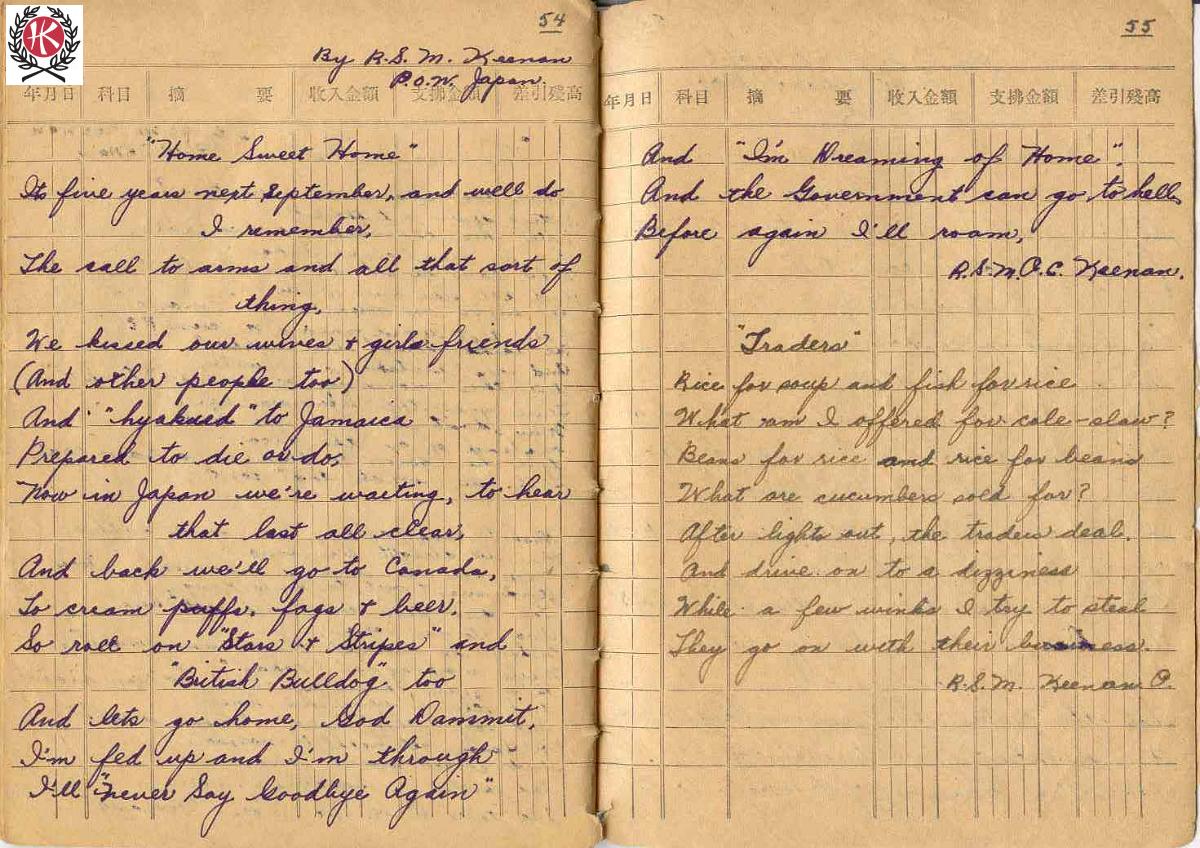 HK
54
By R.S.M. Keenan
P.O.W. Japan.
年月日 科目 摘要 収入金額 支拂金額 差引残高
"Home Sweet Home"
Its five years next September, and well do
I remember,
The call to arms and all that sort of
thing,
We kissed our wives + girls friends
(And other people too)
And "hyakued" to Jamaica
Prepared to die or do,
Now in Japan we're waiting, to hear
that last all clear,
And back we'll go to Canada,
To cream puffs, fags + beer.
So roll on "Stars + Stripes" and
"British Bulldog" too
And lets go home, God Dammit,
I'm fed up and I'm through
I'll "never Say Goodbye Again"
55
年月日 科目 摘要 収入金額 支拂金額 差引残高
And "I'm Dreaming of Home".
And the Government can go to hell,
Before again I'll roam,
R.S.M. O.C. Keenan.
"Traders"
Rice for soup and fish for rice
What am I offered for cole-slaw?
Beans for rice and rice for beans
What are cucumbers sold for?
After lights out, the traders deal,
And drive on to a dizziness
While a few winks I try to steal
They go on with their business.
R.S.M. Keenan O.